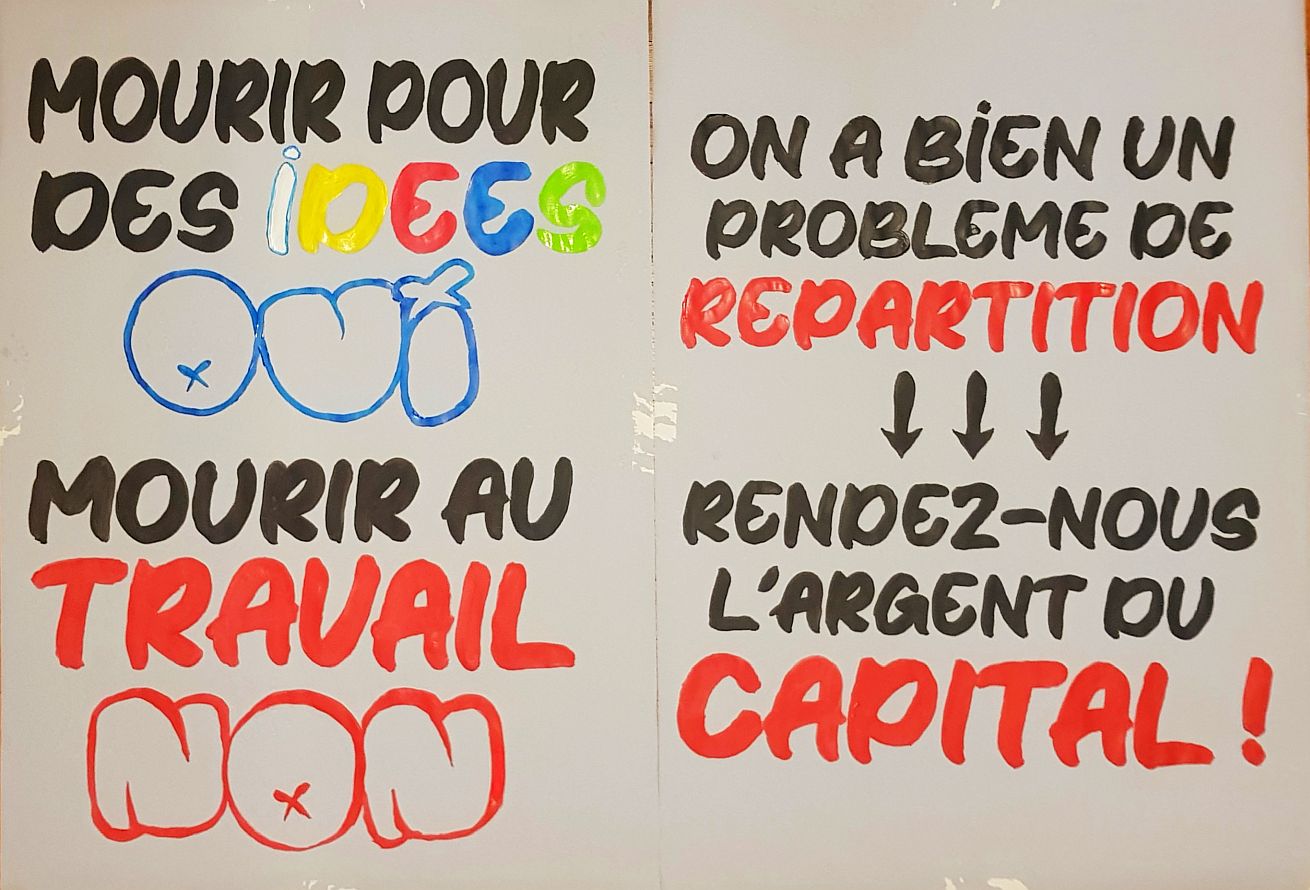 MOURIR POUR
DES iDEES
OUi
MOURIR AU
TRAVAIL
NON
ON A BiEN UN
PROBLEME DE
REPARTITION
RENDEZ-NOUS
L'ARGENT DU
CAPITAL !